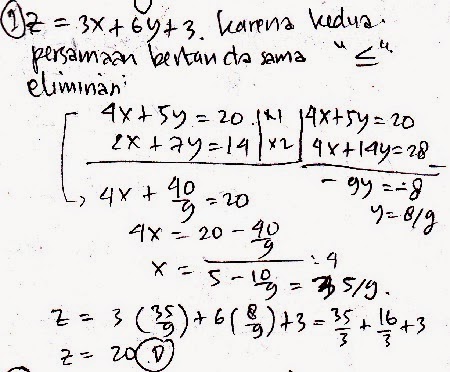 9) Z = 3x + 6y + 3. karena kedua
persamaan bertanda sama "≤"
eliminasi
4x + 5y = 20 |x1| 4x + 5y = 20
2x + 7y = 14 |x2| 4x + 14y = 28
- 9y = -8
y = 8/9
4x + 40/9 = 20
4x = 20 - 40/9
: 4
x = 5 - 10/9 = 35/9.
Z = 3 (35/9) + 6 (8/9) + 3 = 35/3 + 16/3 + 3
Z = 20 (D)